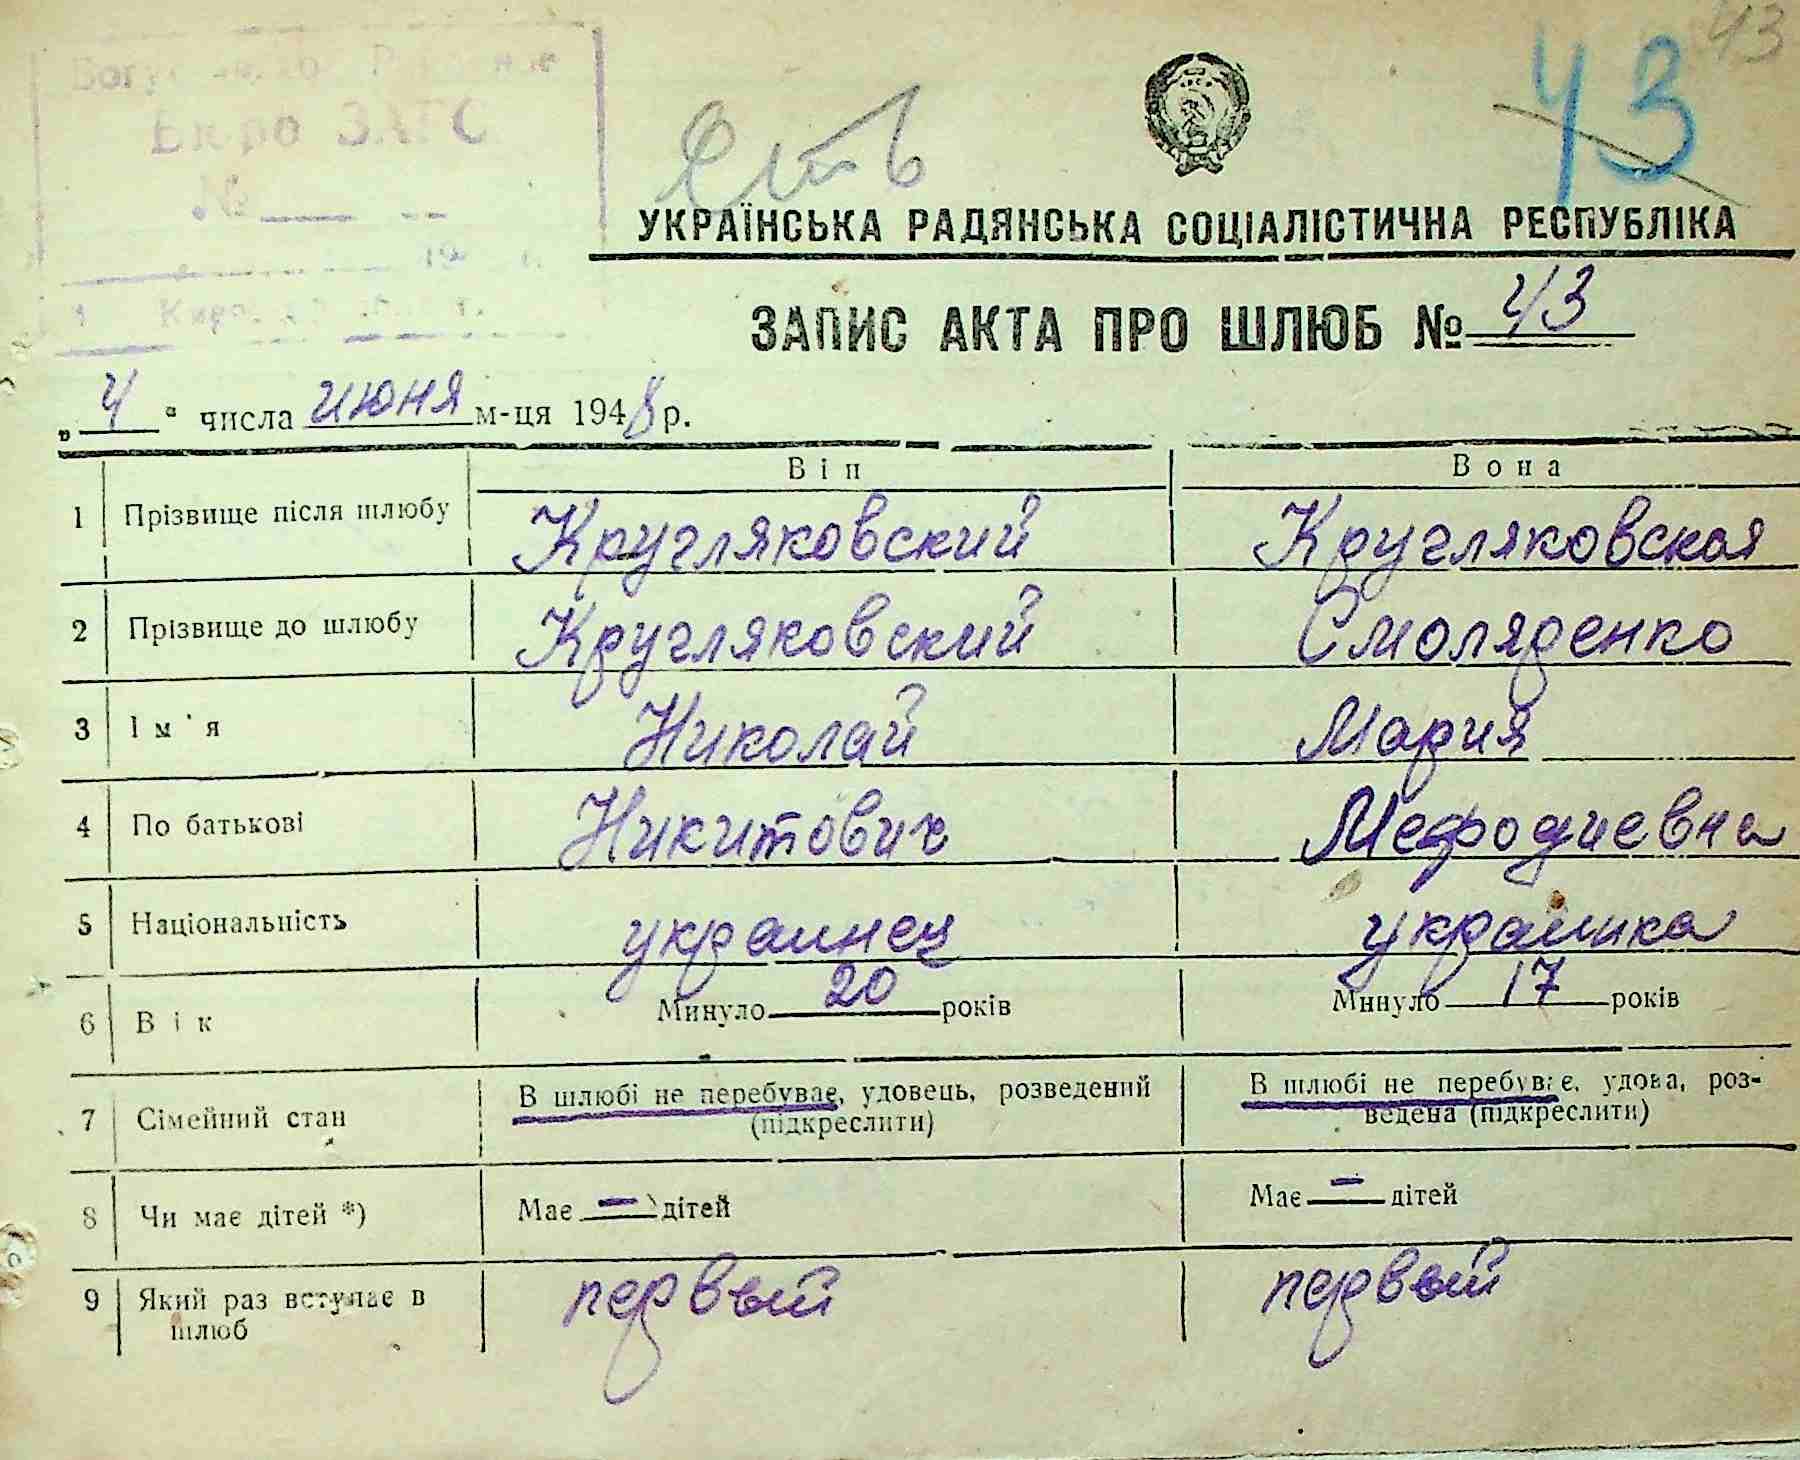 43
43
Бюро ЗАГС
№
Есть
УКРАЇНСЬКА РАДЯНСЬКА СОЦІАЛІСТИЧНА РЕСПУБЛІКА
ЗАПИС АКТА ПРО ШЛЮБ № 43
„ 4 " числа июня м-ця 1948 р.
Він Вона
1 Прізвище після шлюбу Кругляковский Кругляковская
2 Прізвище до шлюбу Кругляковский Смоляренко
3 Ім'я Николай Мария
4 По батькові Никитович Мефодиевна
5 Національність украинец украинка
6 Вік Минуло 20 років Минуло 17 років
7 Сімейний стан В шлюбі не перебуває, удовець, розведений В шлюбі не перебуває, удова, роз-
(підкреслити) ведена (підкреслити)
8 Чи має дітей *) Має — дітей Має — дітей
9 Який раз вступає в первый первый
шлюб